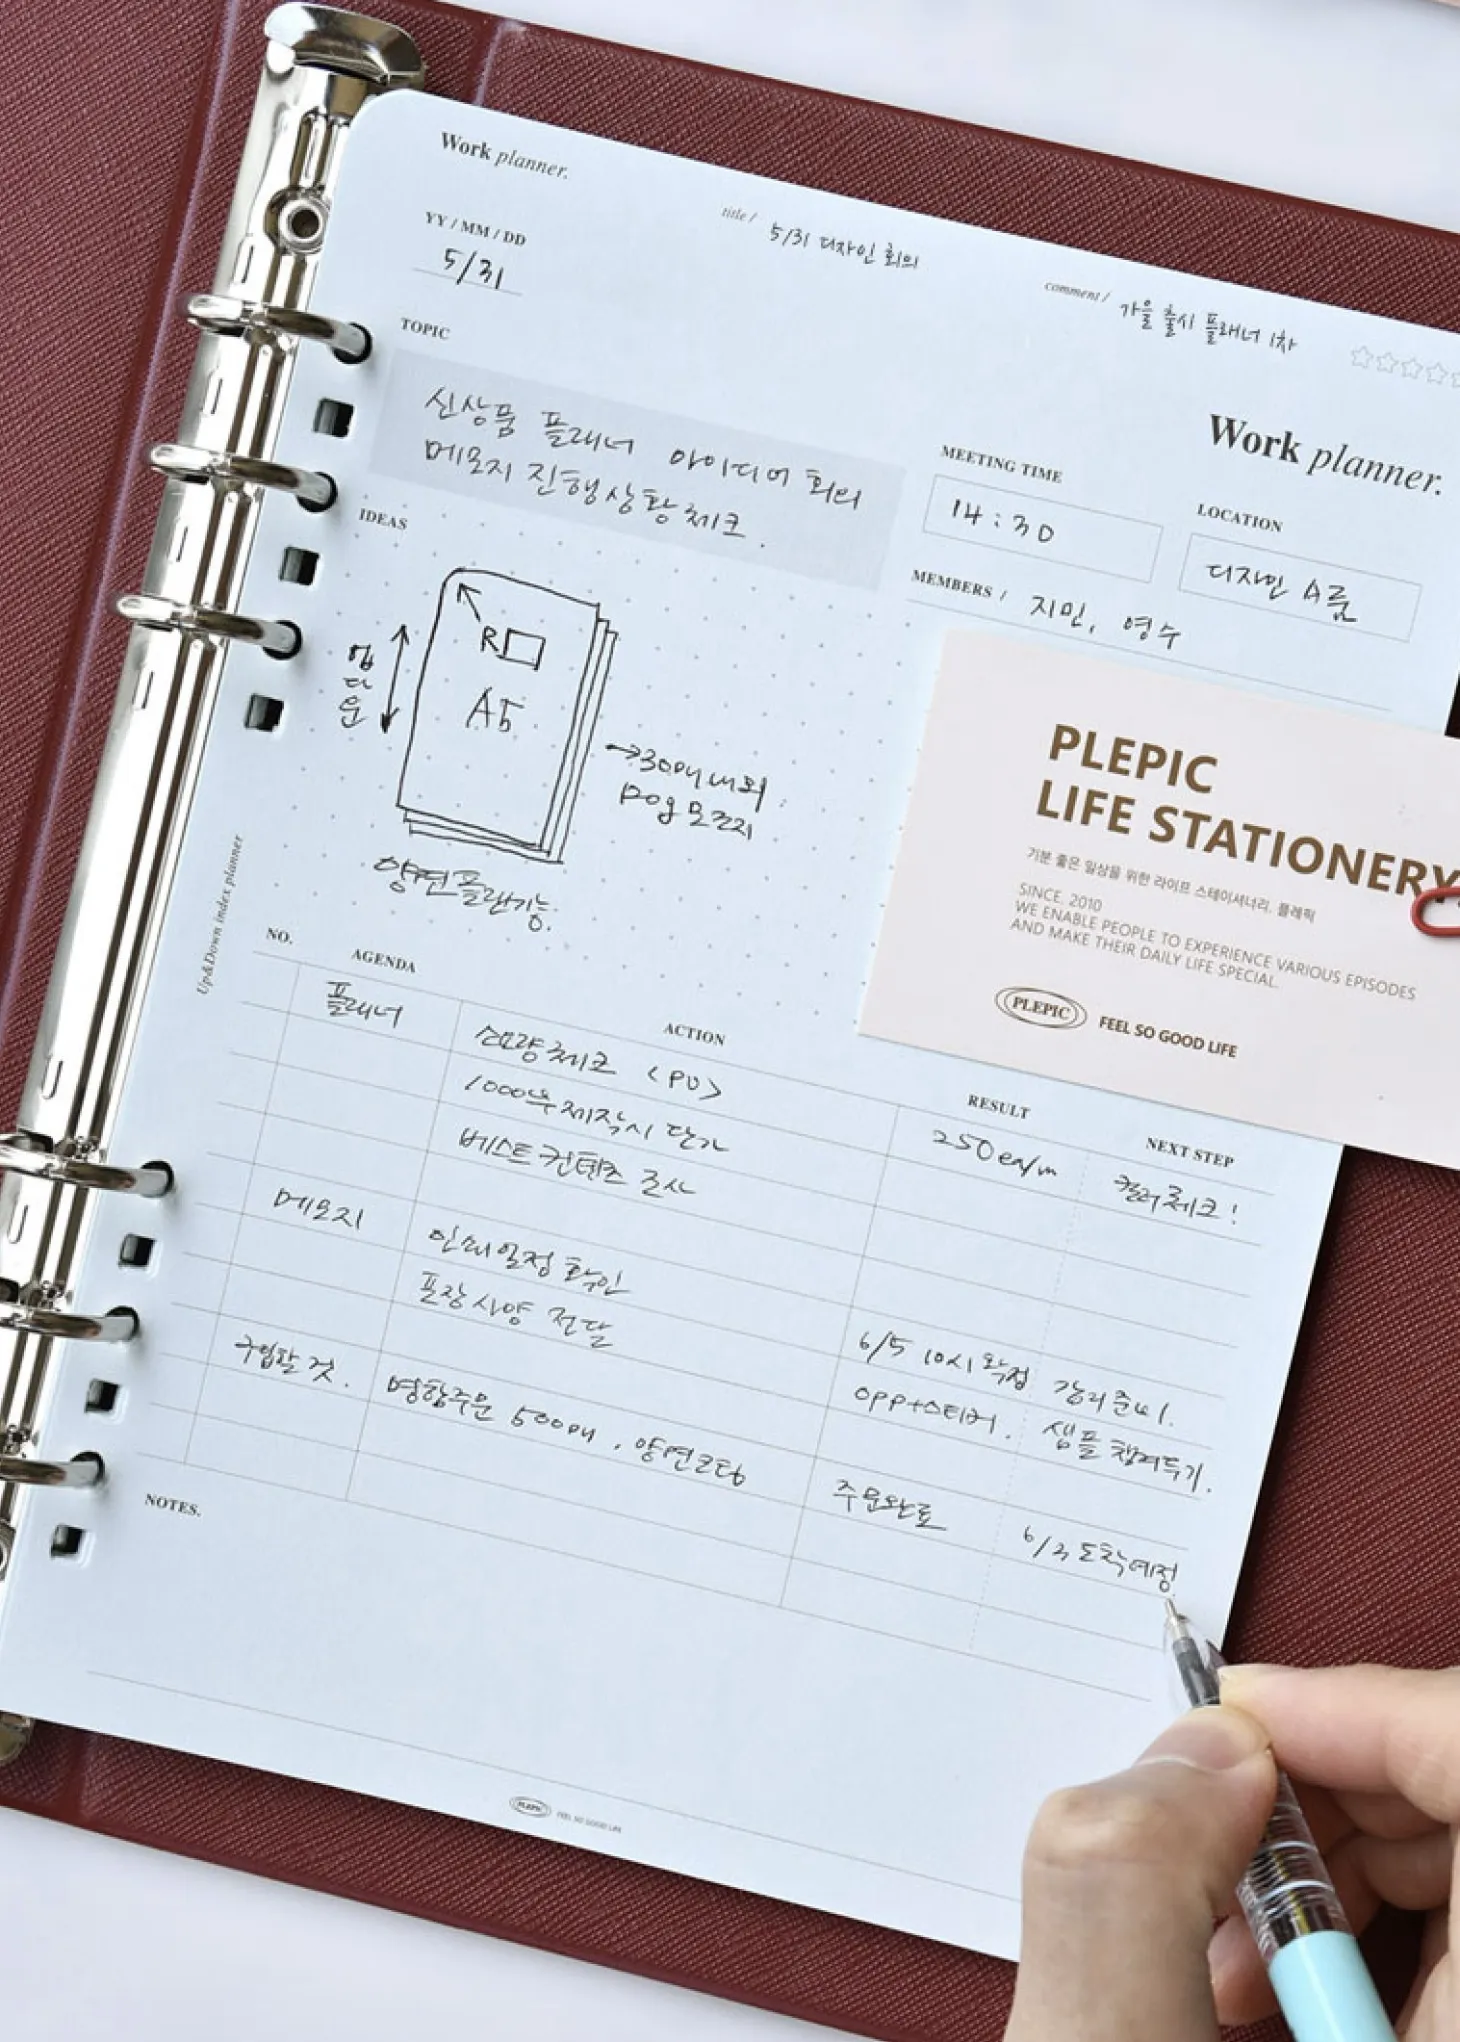 Work planner.
title / 5/31 디자인 회의
YY / MM / DD
5/31
comment / 가을 출시 플래너 1차
TOPIC
신상품 플래너 아이디어 회의
메모지 진행상황체크.
Work planner.
MEETING TIME
14:30
LOCATION
디자인 A룸
MEMBERS / 지민, 영수
IDEAS
R
A5
업다운
→30매 내외
120g 모조지
양면플랜기능.
PLEPIC
LIFE STATIONERY
기분 좋은 일상을 위한 라이프 스테이셔너리. 플레픽
SINCE. 2010
WE ENABLE PEOPLE TO EXPERIENCE VARIOUS EPISODES
AND MAKE THEIR DAILY LIFE SPECIAL.
PLEPIC FEEL SO GOOD LIFE
Up&Down index planner
NO. AGENDA ACTION RESULT NEXT STEP
플래너 소모량체크 <PU> 250ea/m 컬러체크!
1000부제작시 단가
베스트컨텐츠 조사
메모지 인쇄일정 확인 6/5 10시 확정 감리준비.
포장사양 전달 OPP+스티커. 샘플 챙겨두기.
구입할 것. 명함주문 500매, 양면코팅 주문완료 6/2 도착예정
NOTES.
PLEPIC FEEL SO GOOD LIFE